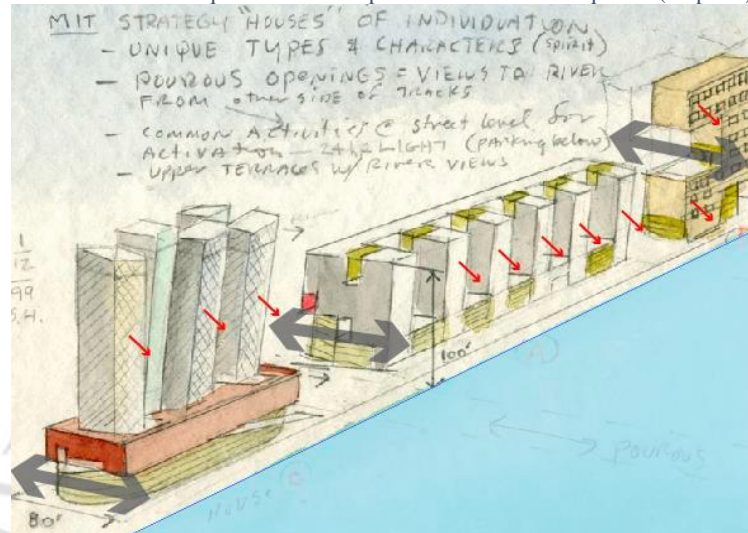 MIT STRATEGY "HOUSES" OF INDIVIDUATION
- UNIQUE TYPES & CHARACTERS (SPIRIT)
- POUROUS OPENINGS = VIEWS TO RIVER
FROM other side of TRACKS
- COMMON ACTIVITIES @ street level for
ACTIVATION — 24 hr LIGHT (parking below)
- UPPER TERRACES W/ RIVER VIEWS
1
12
99
S.H.
100'
POUROUS
HOUSE
80'